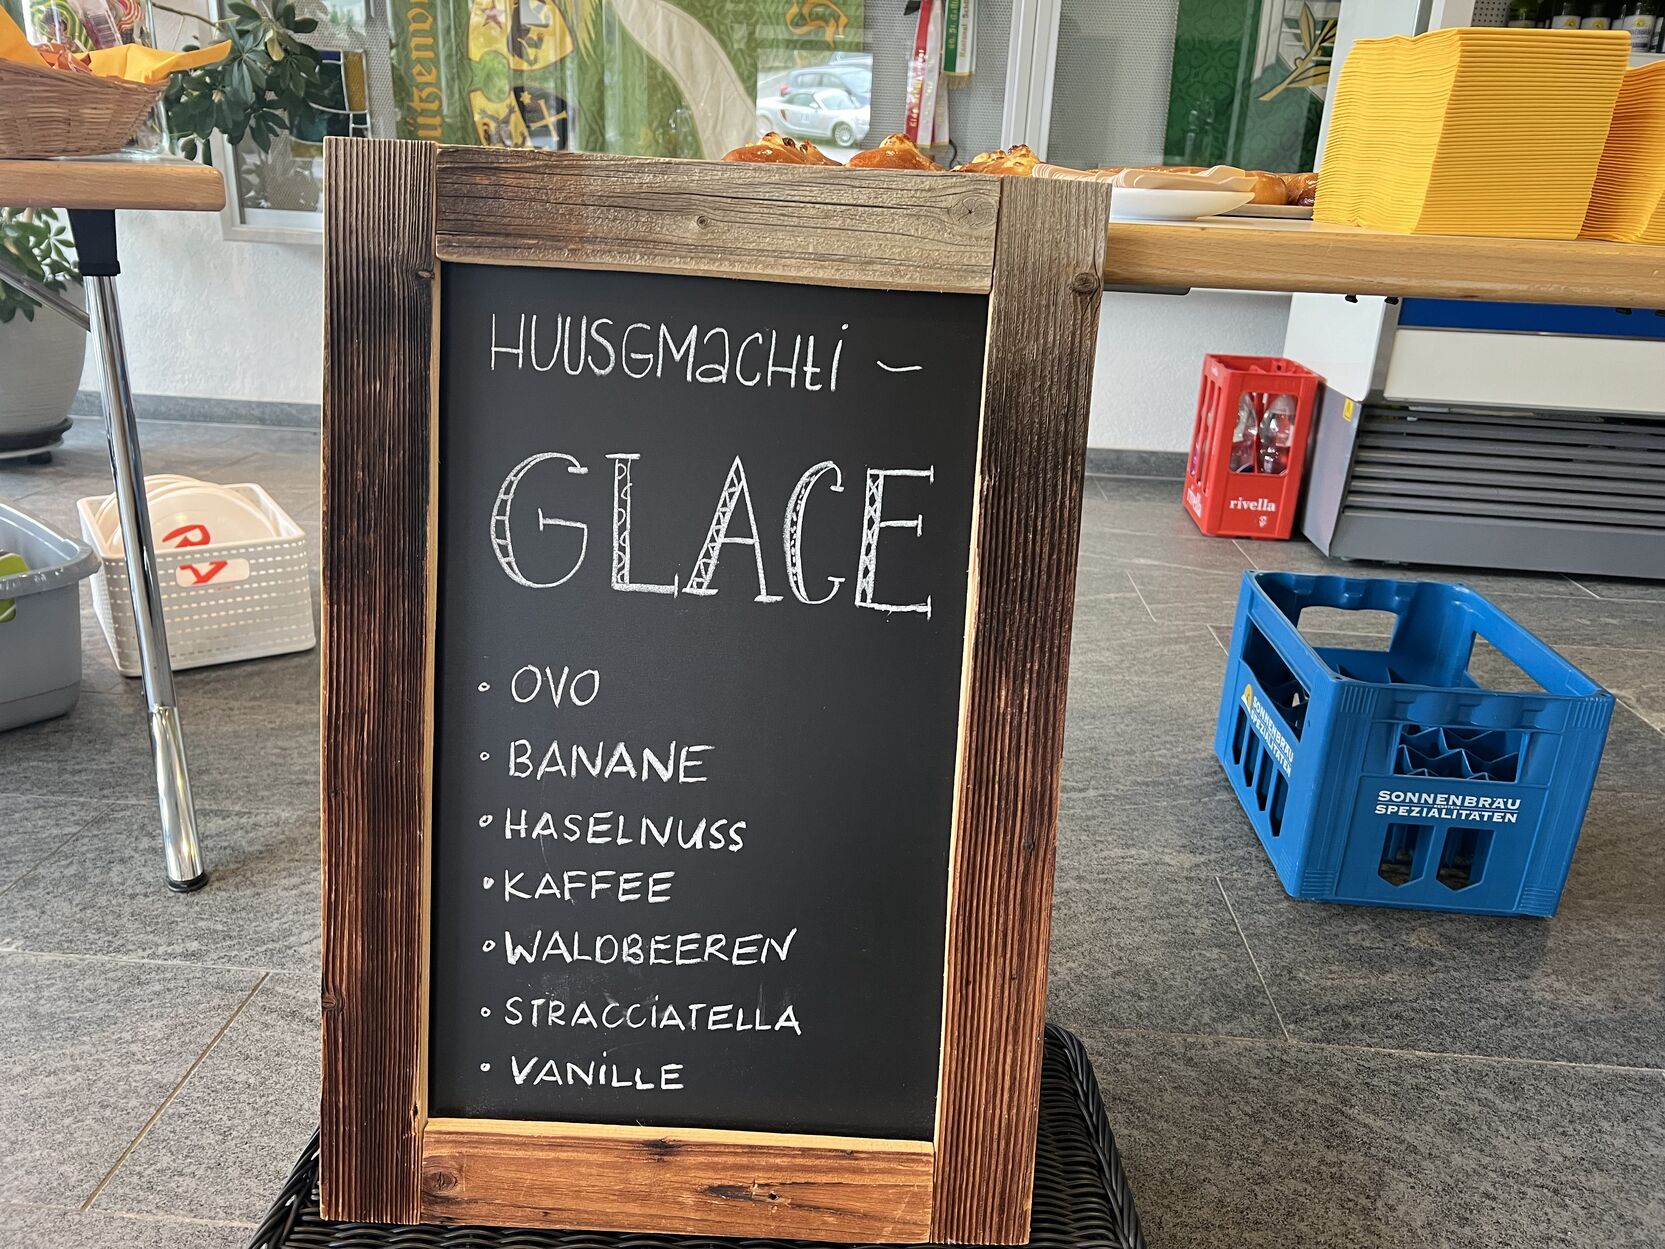 HUUSGMACHti –
GLACE
• OVO
• BANANE
• HASELNUSS
• KAFFEE
• WALDBEEREN
• STRACCiATELLA
• VANiLLE
rivella
SONNENBRÄU
SPEZIALITÄTEN
SONNENBRÄU
SPEZIALITÄTEN